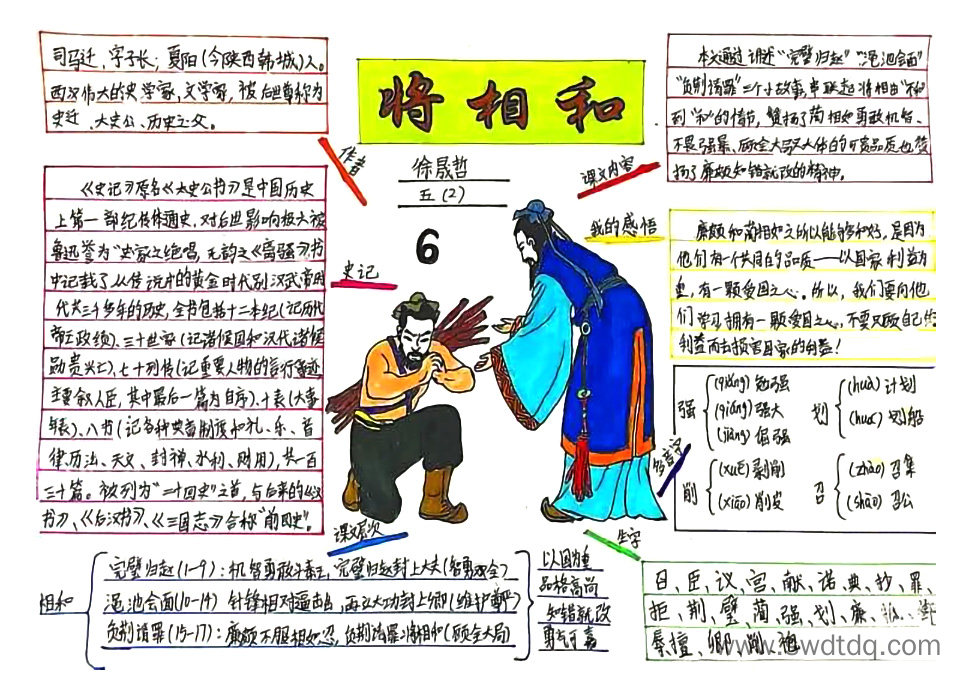 司马迁，字子长，夏阳（今陕西韩城）人。
西汉伟大的史学家，文学家，被后世尊称为
史迁、太史公、历史之父。
作者
将相和
徐晟哲
五（2）
6
本文通过讲述“完璧归赵”“渑池会面”
“负荆请罪”三个小故事，串联起将相由“不和”
到“和”的情节，赞扬了蔺相如勇敢机智、
不畏强暴、顾全大局识大体的可贵品质也赞
扬了廉颇知错就改的精神。
课文内容
我的感悟
廉颇和蔺相如之所以能够和好，是因为
他们有一个共同的品质——以国家利益为
重，有一颗爱国之心。所以，我们要向他
们学习拥有一颗爱国之心，不要只顾自己的
利益而去损害国家的利益！
史记
《史记》原名《太史公书》是中国历史
上第一部纪传体通史，对后世影响极大被
鲁迅誉为“史家之绝唱，无韵之《离骚》”书
中记载了从传说中的黄金时代到汉武帝时
代共三千多年的历史，全书包括十二本纪（记历代
帝王政绩）、三十世家（记诸侯国和汉代诸侯
勋贵兴亡）、七十列传（记重要人物的言行事迹
主要叙人臣，其中最后一篇为自序）、十表（大事
年表）、八书（记各种典章制度和礼、乐、音
律、历法、天文、封禅、水利、财用），共一百
三十篇。被列为“二十四史”之首，与后来的《汉
书》、《后汉书》、《三国志》合称“前四史”。
多音字
强 (qiǎng) 勉强
(qiáng) 强大
(jiàng) 倔强
划 (huà) 计划
(huá) 划船
削 (xuē) 剥削
(xiāo) 削皮
召 (zhào) 召集
(shào) 召公
课文层次
相和
完璧归赵（1-9）：机智勇敢斗秦王，完璧归赵封上大夫（智勇双全）
渑池会面（10-14） 针锋相对逼击缶，再立大功封上卿（维护尊严）
负荆请罪（15-17）：廉颇不服相如忍，负荆请罪将相和（顾全大局）
以国为重
品格高尚
知错就改
勇气可嘉
生字
召、臣、议、宫、献、诺、典、抄、罪、
拒、荆、璧、蔺、强、划、廉、
辱、擅、卿、削、